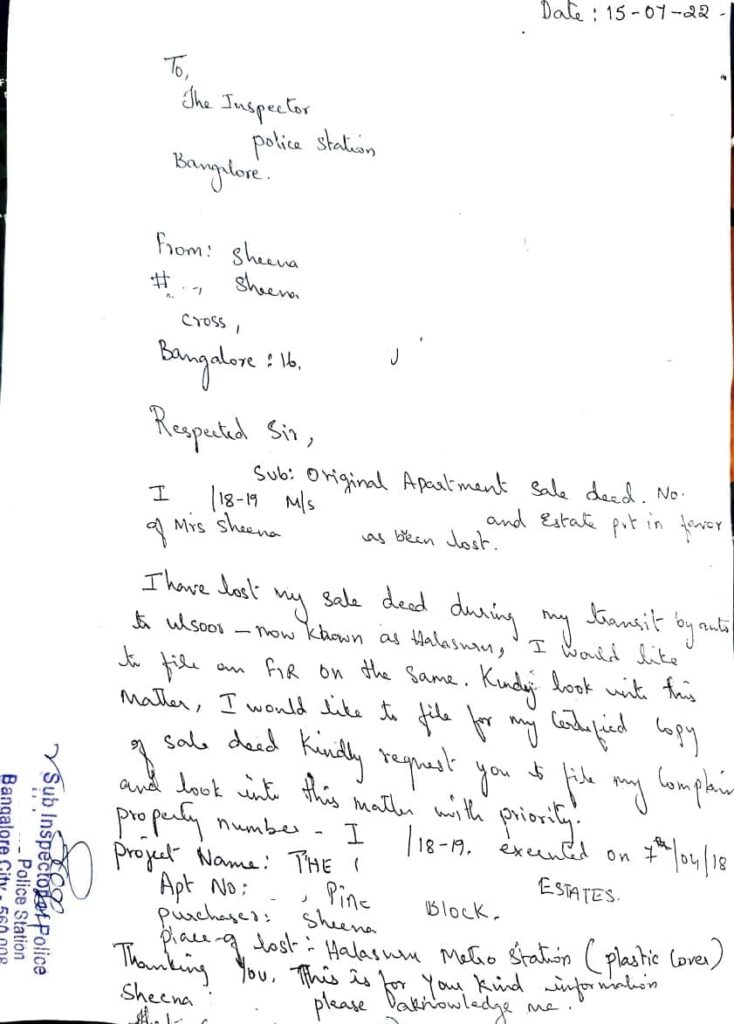 Date : 15-07-22 -
To,
The Inspector
police station
Bangalore.
From: Sheena
# Sheena
cross,
Bangalore : 16.
Respected Sir,
Sub: Original Apartment sale deed. No.
I /18-19 M/s
and Estate pvt in favor
of Mrs Sheena as been lost.
I have lost my sale deed during my transit by auto
to ulsoor - now known as Halasuru, I would like
to file an FIR on the same. Kindly look into this
matter, I would like to file for my Certified Copy
of sale deed Kindly request you to file my Complain
and look into this matter with priority.
property number - I /18-19. executed on 7th/04/18
project Name: THE ESTATES.
Apt No: , Pine BLOCK.
purchaser: Sheena
place of lost : Halasuru Metro Station (plastic Cover)
Thanking You. This is for Your kind information
Sheena please aknowledge me.
Sub Inspector of Police
Police Station
Bangalore City - 560 008